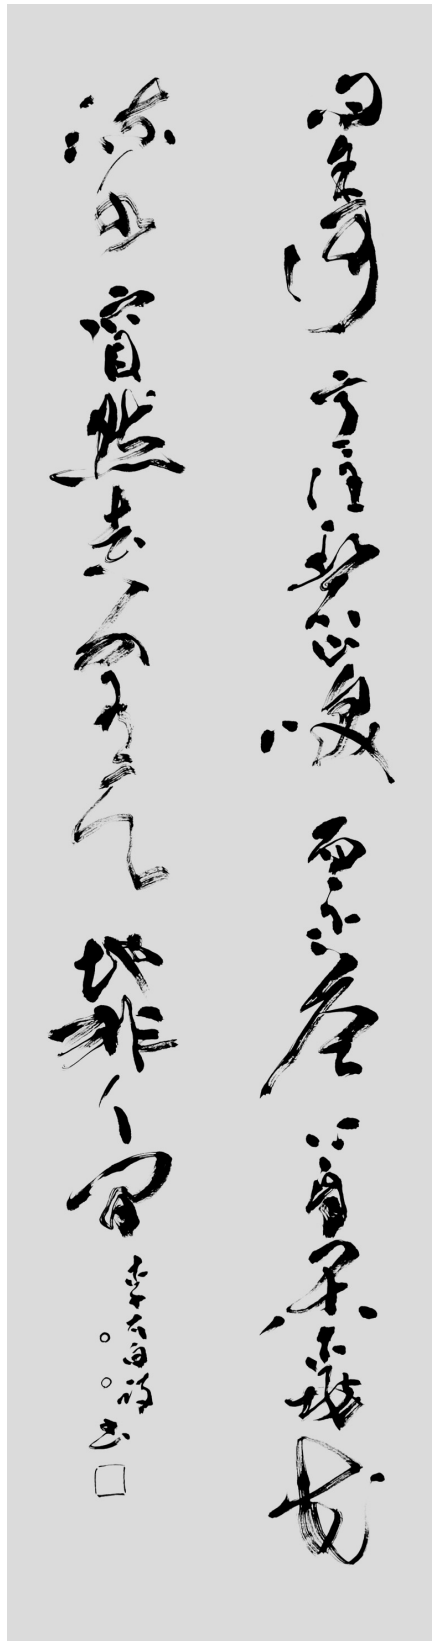 問余何事棲碧山咲而不答心自閑桃花
流水窅然去別有天地非人間
李太白詩○○书